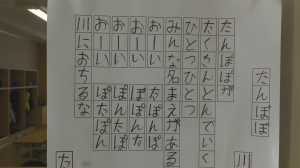 たんぽぽ
川
たんぽぽが
たくさんとんでいく
ひとつひとつ
みんな名まえがある
おーい たぽんぽ
おーい ぽぽんた
おーい ぽんたぽ
おーい ぽたぽん
川におちるな
た